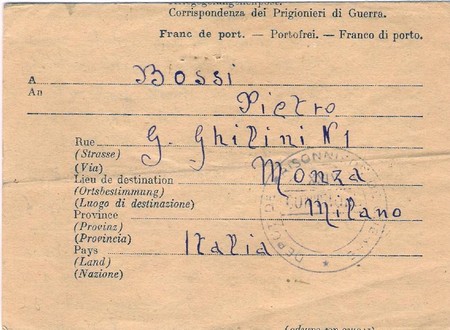 Kriegsgefangenenpost.
Corrispondenza dei Prigionieri di Guerra.
Franc de port. — Portofrei. — Franco di porto.
A Bossi
An Pietro
Rue G. Ghilini N 1
(Strasse)
(Via) Monza
Lieu de destination
(Ortsbestimmung)
(Luogo di destinazione) Milano
Province
(Provinz)
(Provincia)
Pays Italia
(Land)
(Nazione)